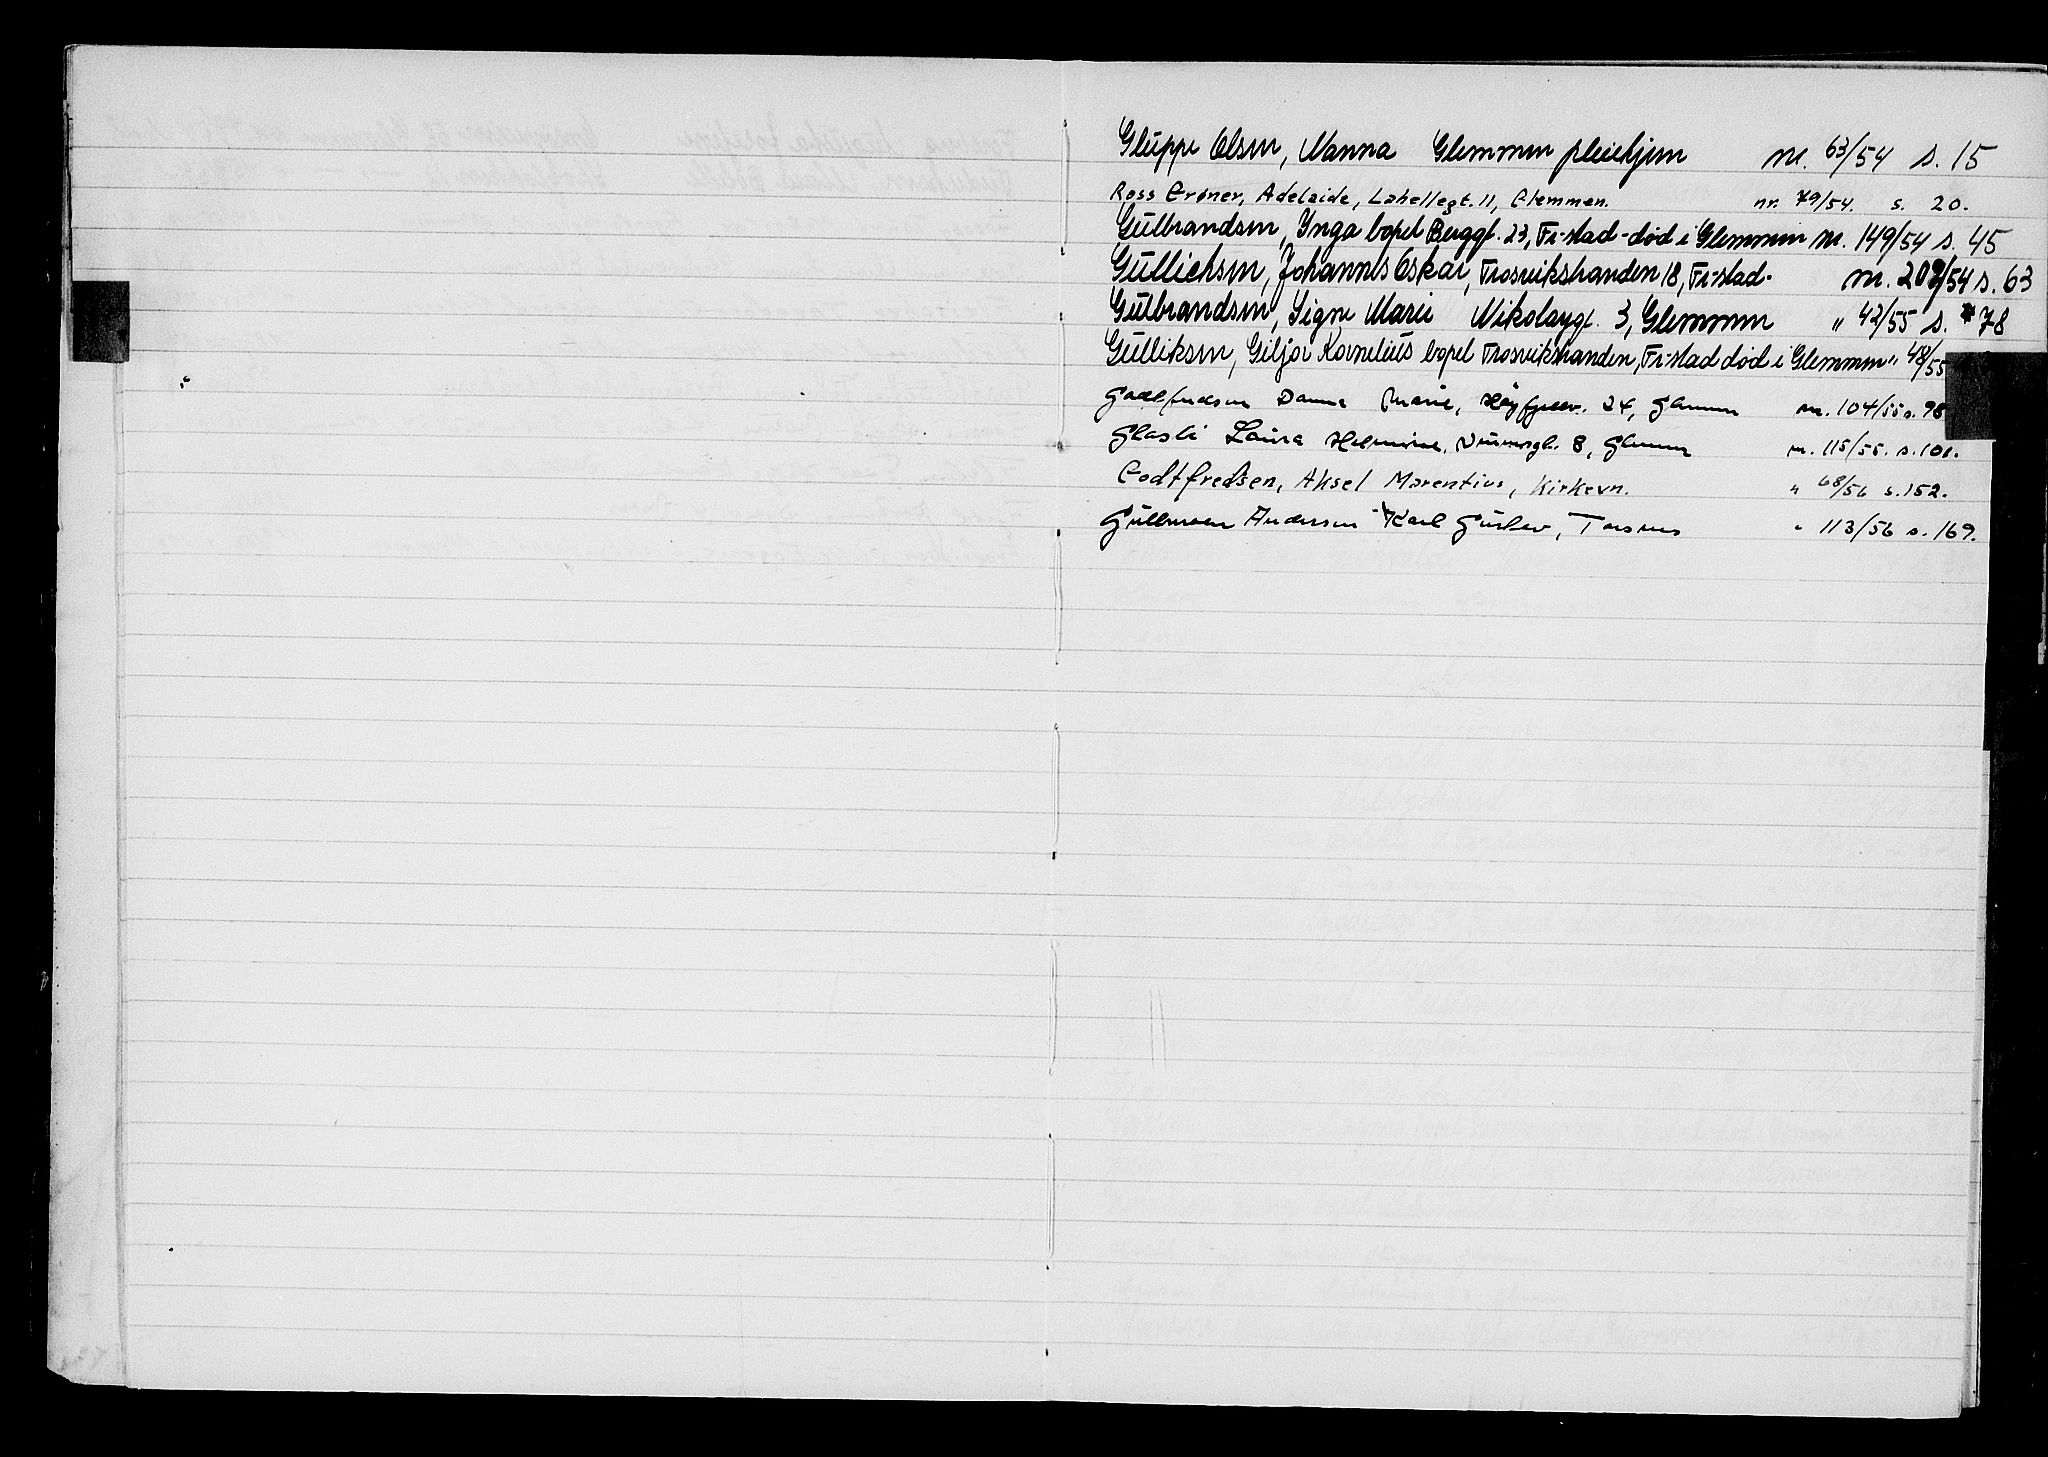 Gluppe Olsen, Nanna Glemmen pleiehjem nr. 63/54 s. 15
Ross Grøner, Adelaide, Lahellegt. 11, Glemmen. nr. 79/54. s. 20.
Gulbrandsen, Ynga bopel Berggt. 23, Fr-stad - død i Glemmen nr. 149/54 s. 45
Gullichsen, Johannes Oskar, Trosvikstranden 18, Fr-stad. nr. 209/54 s. 63
Gulbrandsen, Signe Marie Nikolaygt. 3, Glemmen " 42/55 s. 78
Gulliksen, Kornelius bopel Trosvikstranden, Fr-stad død i Glemmen " 48/55
Marie, 24, Glemmen nr. 104/55 s. 98
Laura 8, Glemmen nr. 115/55. s. 101.
Godtfredsen, Aksel Marentius, Kirkevn. " 68/56 s. 152.
Andersen Karl Gustav, " 113/56 s. 169.